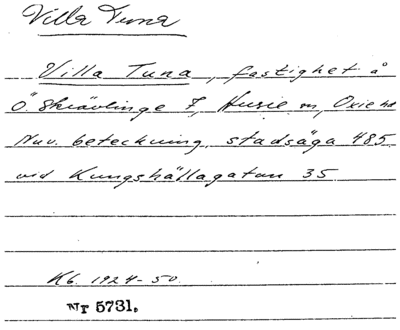 Villa Tuna
Villa Tuna, fastighet å
Ö. Skrävlinge 7, Husie sn, Oxie hd
Nuv. beteckning, stadsäga 485
vid Kungshällagatan 35
Kb. 1924-50
Nr 5731.